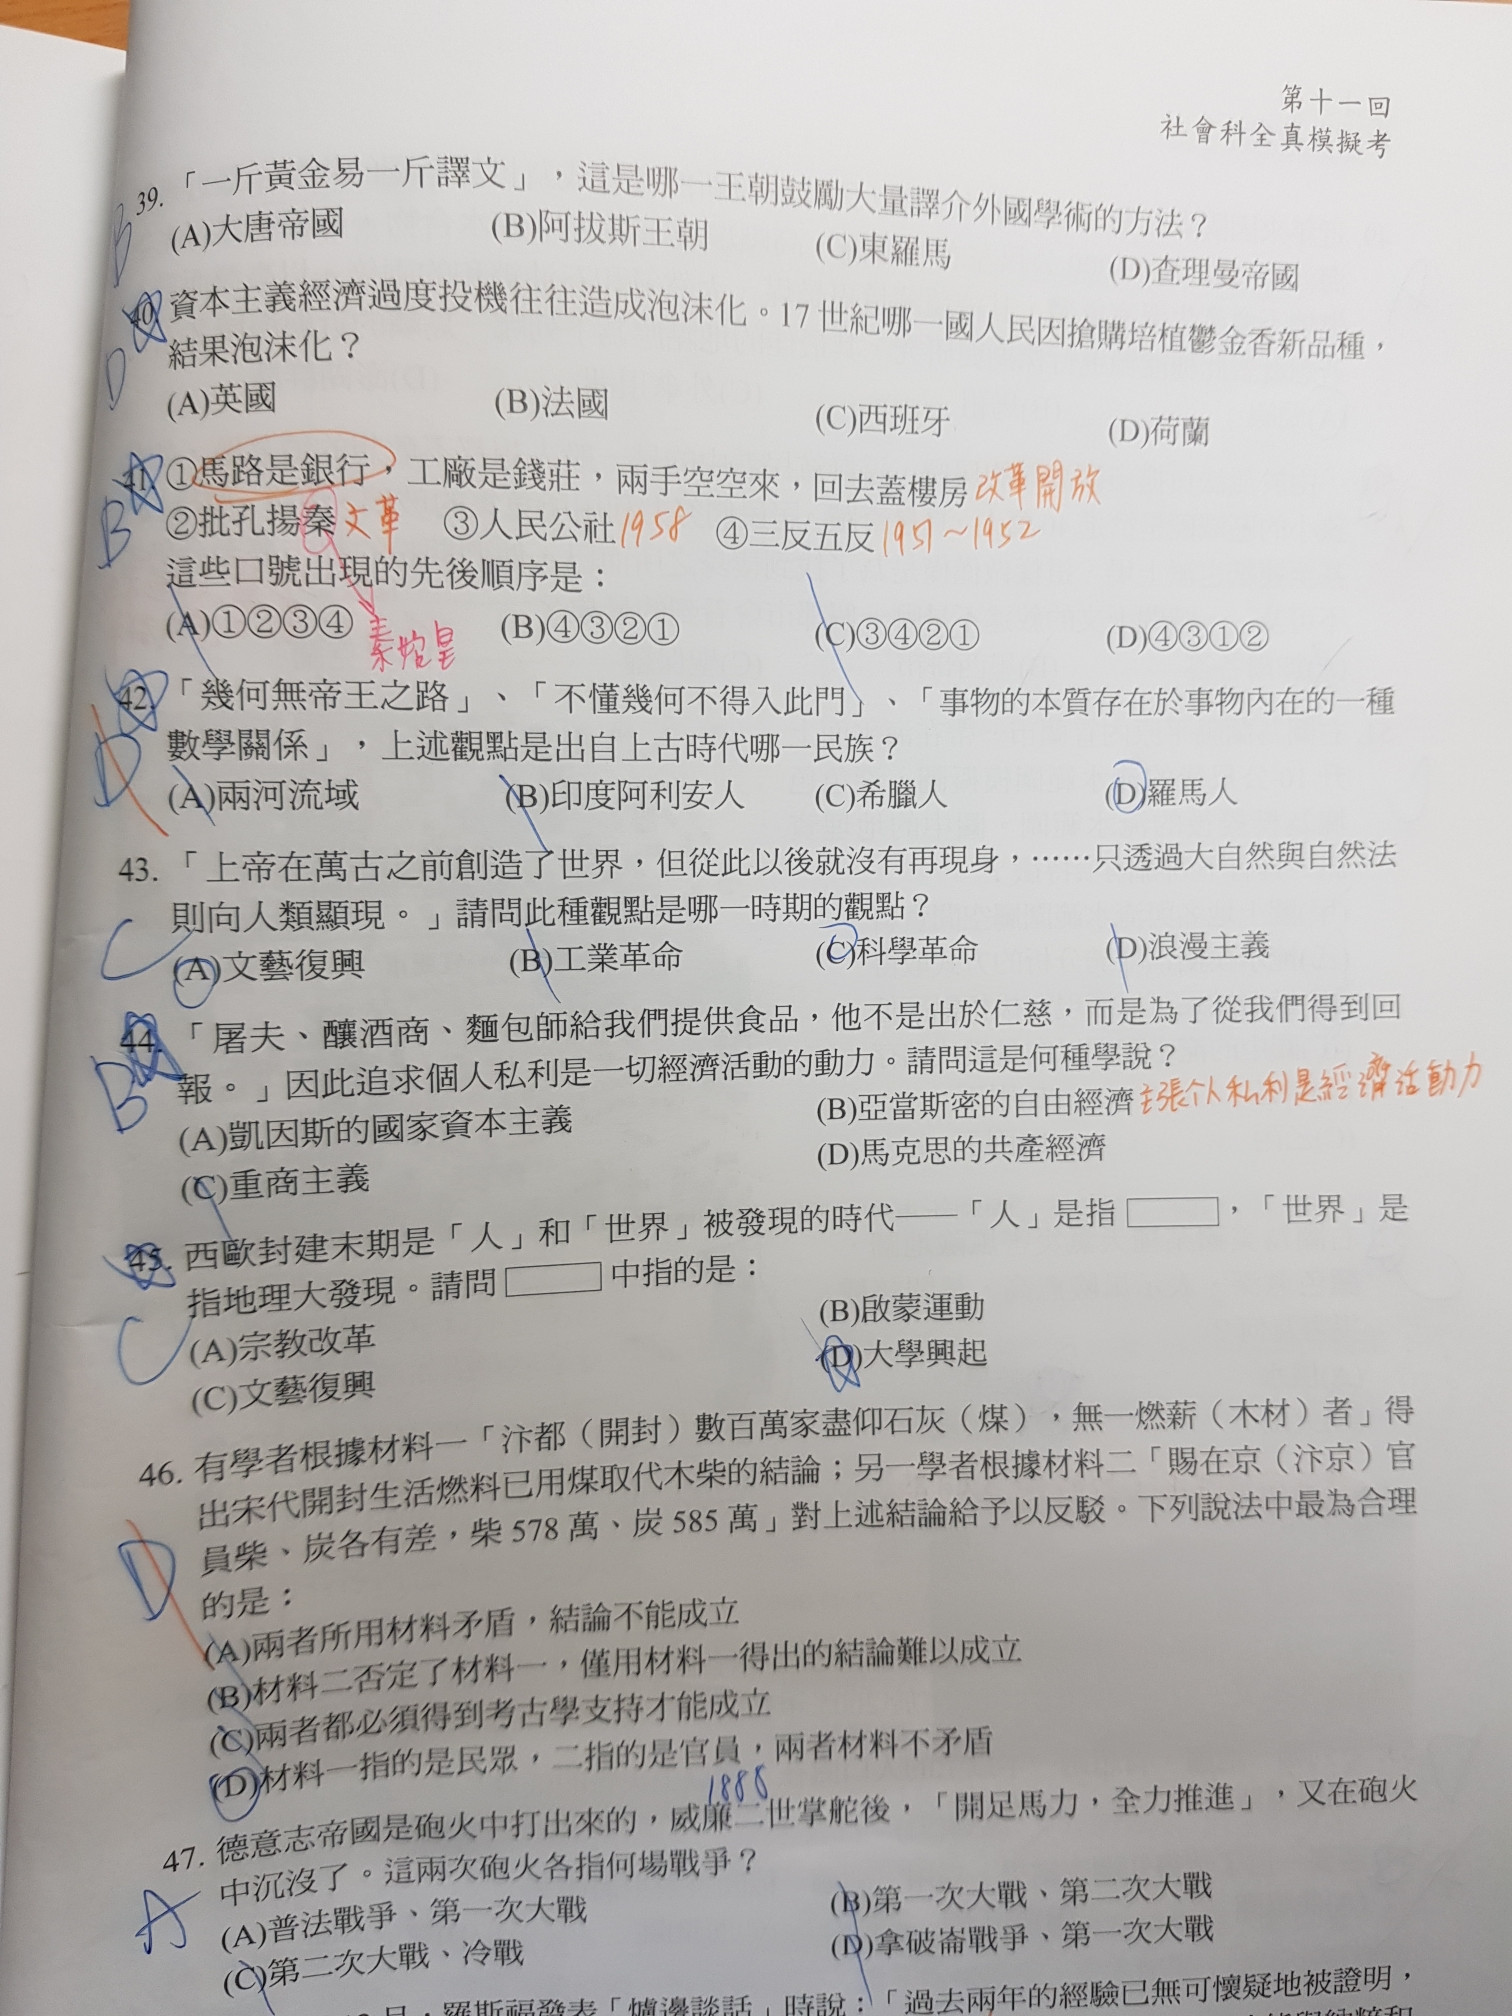 第十一回
社會科全真模擬考
B 39. 「一斤黃金易一斤譯文」，這是哪一王朝鼓勵大量譯介外國學術的方法？
(A)大唐帝國 (B)阿拔斯王朝 (C)東羅馬 (D)查理曼帝國
40. 資本主義經濟過度投機往往造成泡沫化。17 世紀哪一國人民因搶購培植鬱金香新品種，
D 結果泡沫化？
(A)英國 (B)法國 (C)西班牙 (D)荷蘭
41. ①馬路是銀行，工廠是錢莊，兩手空空來，回去蓋樓房 改革開放
B ②批孔揚秦 文革 ③人民公社 1958 ④三反五反 1951～1952
這些口號出現的先後順序是：
(A)①②③④ 秦始皇 (B)④③②① (C)③④②① (D)④③①②
42. 「幾何無帝王之路」、「不懂幾何不得入此門」、「事物的本質存在於事物內在的一種
D 數學關係」，上述觀點是出自上古時代哪一民族？
(A)兩河流域 (B)印度阿利安人 (C)希臘人 (D)羅馬人
43. 「上帝在萬古之前創造了世界，但從此以後就沒有再現身，⋯⋯只透過大自然與自然法
C 則向人類顯現。」請問此種觀點是哪一時期的觀點？
(A)文藝復興 (B)工業革命 (C)科學革命 (D)浪漫主義
44. 「屠夫、釀酒商、麵包師給我們提供食品，他不是出於仁慈，而是為了從我們得到回
B 報。」因此追求個人私利是一切經濟活動的動力。請問這是何種學說？
(A)凱因斯的國家資本主義 (B)亞當斯密的自由經濟 主張个人私利是經濟活動力
(C)重商主義 (D)馬克思的共產經濟
45. 西歐封建末期是「人」和「世界」被發現的時代——「人」是指 ，「世界」是
指地理大發現。請問 中指的是：
C (A)宗教改革 (B)啟蒙運動
(C)文藝復興 (D)大學興起
46. 有學者根據材料一「汴都（開封）數百萬家盡仰石灰（煤），無一燃薪（木材）者」得
出宋代開封生活燃料已用煤取代木柴的結論；另一學者根據材料二「賜在京（汴京）官
D 員柴、炭各有差，柴 578 萬、炭 585 萬」對上述結論給予以反駁。下列說法中最為合理
的是：
(A)兩者所用材料矛盾，結論不能成立
(B)材料二否定了材料一，僅用材料一得出的結論難以成立
(C)兩者都必須得到考古學支持才能成立
(D)材料一指的是民眾，二指的是官員，兩者材料不矛盾
1888
47. 德意志帝國是砲火中打出來的，威廉二世掌舵後，「開足馬力，全力推進」，又在砲火
中沉沒了。這兩次砲火各指何場戰爭？
A (A)普法戰爭、第一次大戰 (B)第一次大戰、第二次大戰
(C)第二次大戰、冷戰 (D)拿破崙戰爭、第一次大戰
月，羅斯福發表「爐邊談話」時說：「過去兩年的經驗已無可懷疑地被證明，